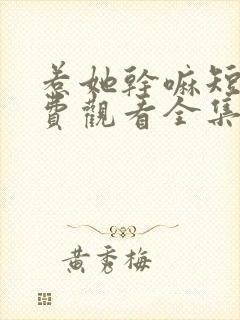 惹她幹嘛短
費觀看全集
黃秀梅